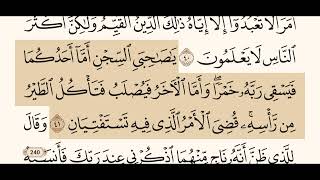 أَمَرَ أَلَّا تَعْبُدُوٓا۟ إِلَّآ إِيَّاهُ ذَٰلِكَ ٱلدِّينُ ٱلْقَيِّمُ وَلَٰكِنَّ أَكْثَرَ
ٱلنَّاسِ لَا يَعْلَمُونَ ٤٠ يَٰصَٰحِبَىِ ٱلسِّجْنِ أَمَّآ أَحَدُكُمَا
فَيَسْقِى رَبَّهُۥ خَمْرًا وَأَمَّا ٱلْءَاخَرُ فَيُصْلَبُ فَتَأْكُلُ ٱلطَّيْرُ
مِن رَّأْسِهِۦ قُضِىَ ٱلْأَمْرُ ٱلَّذِى فِيهِ تَسْتَفْتِيَانِ ٤١ وَقَالَ
لِلَّذِى ظَنَّ أَنَّهُۥ نَاجٍ مِّنْهُمَا ٱذْكُرْنِى عِندَ رَبِّكَ فَأَنسَىٰهُ
240